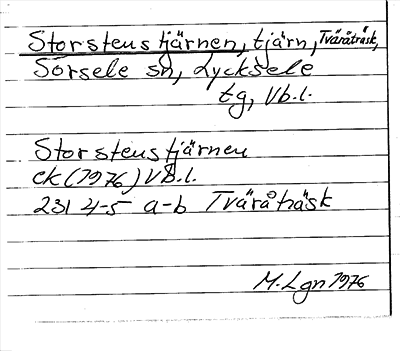 Storstenstjärnen, tjärn, Tväråträsk,
Sorsele sn, Lycksele
tg, Vb.l.
Storstenstjärnen
ek (1976) VB.l.
231 4-5 a-b Tväråträsk
M. Lgn 1976